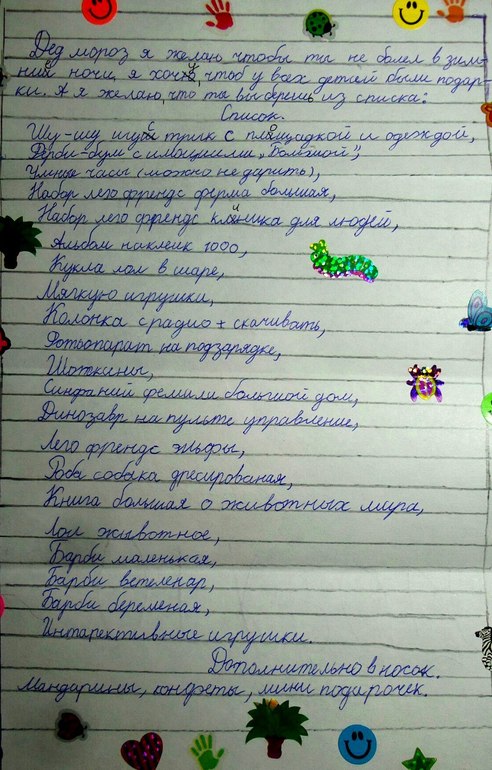 Дед мороз я желаю чтобы ты не болел в зим-
нии ночи, я хочу, чтоб у всех детей были подар-
ки. А я желаю, что ты выберешь из списка:
Список.
Шу-шу игуся трик с площадкой и одеждой,
Дерби-бум с имоциями, "Большой",
Умные часы (можно не дарить),
Набор лего френдс ферма большая,
Набор лего френдс клиника для людей,
Альбом наклеик 1000,
Кукла лол в шаре,
Мягкую игрушки,
Колонка с радио + скачивать,
Фотоопарат на подзарядке,
Шопкины,
Синфаний фемили большой дом,
Динозавр на пульте управление,
Лего френдс эльфы,
Робо собака дресированая,
Книга большая о животных мира,
Лол животное,
Барби маленькая,
Барби ветеленар,
Барби беременая,
Интарективные игрушки.
Дополнительно в носок.
Мандарины, конфеты, мини подарочек.